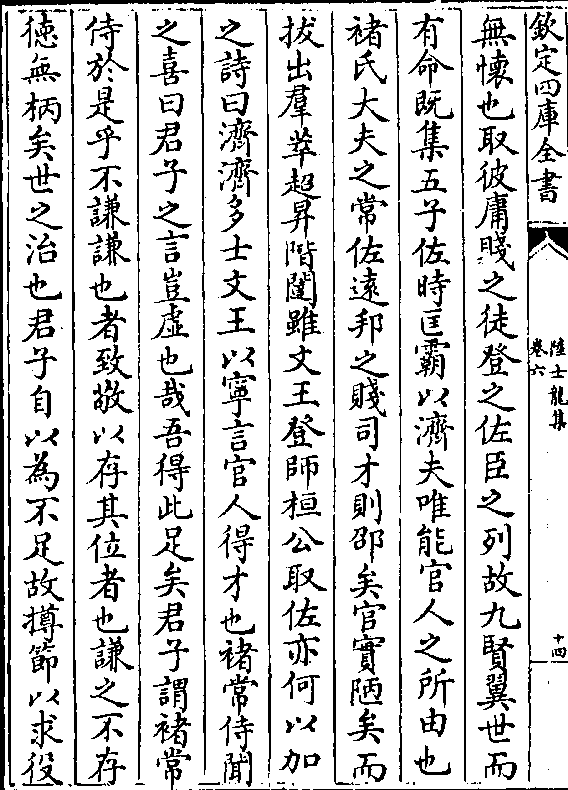 欽定四庫全書
陸士龍集
卷六
十四
無懷也取彼庸賤之徒登之佐臣之列故九賢翼世而
有命既集五子佐時匡霸以濟夫唯能官人之所由也
褚氏大夫之常佐遠邦之賤司才則邵矣官實陋矣而
拔出羣萃超昇階闥雖文王登師桓公取佐亦何以加
之詩曰濟濟多士文王以寧言官人得才也褚常侍聞
之喜曰君子之言豈虛也哉吾得此足矣君子謂褚常
侍於是乎不謙謙也者致敬以存其位者也謙之不存
徳無柄矣世之治也君子自以為不足故撙節以求役